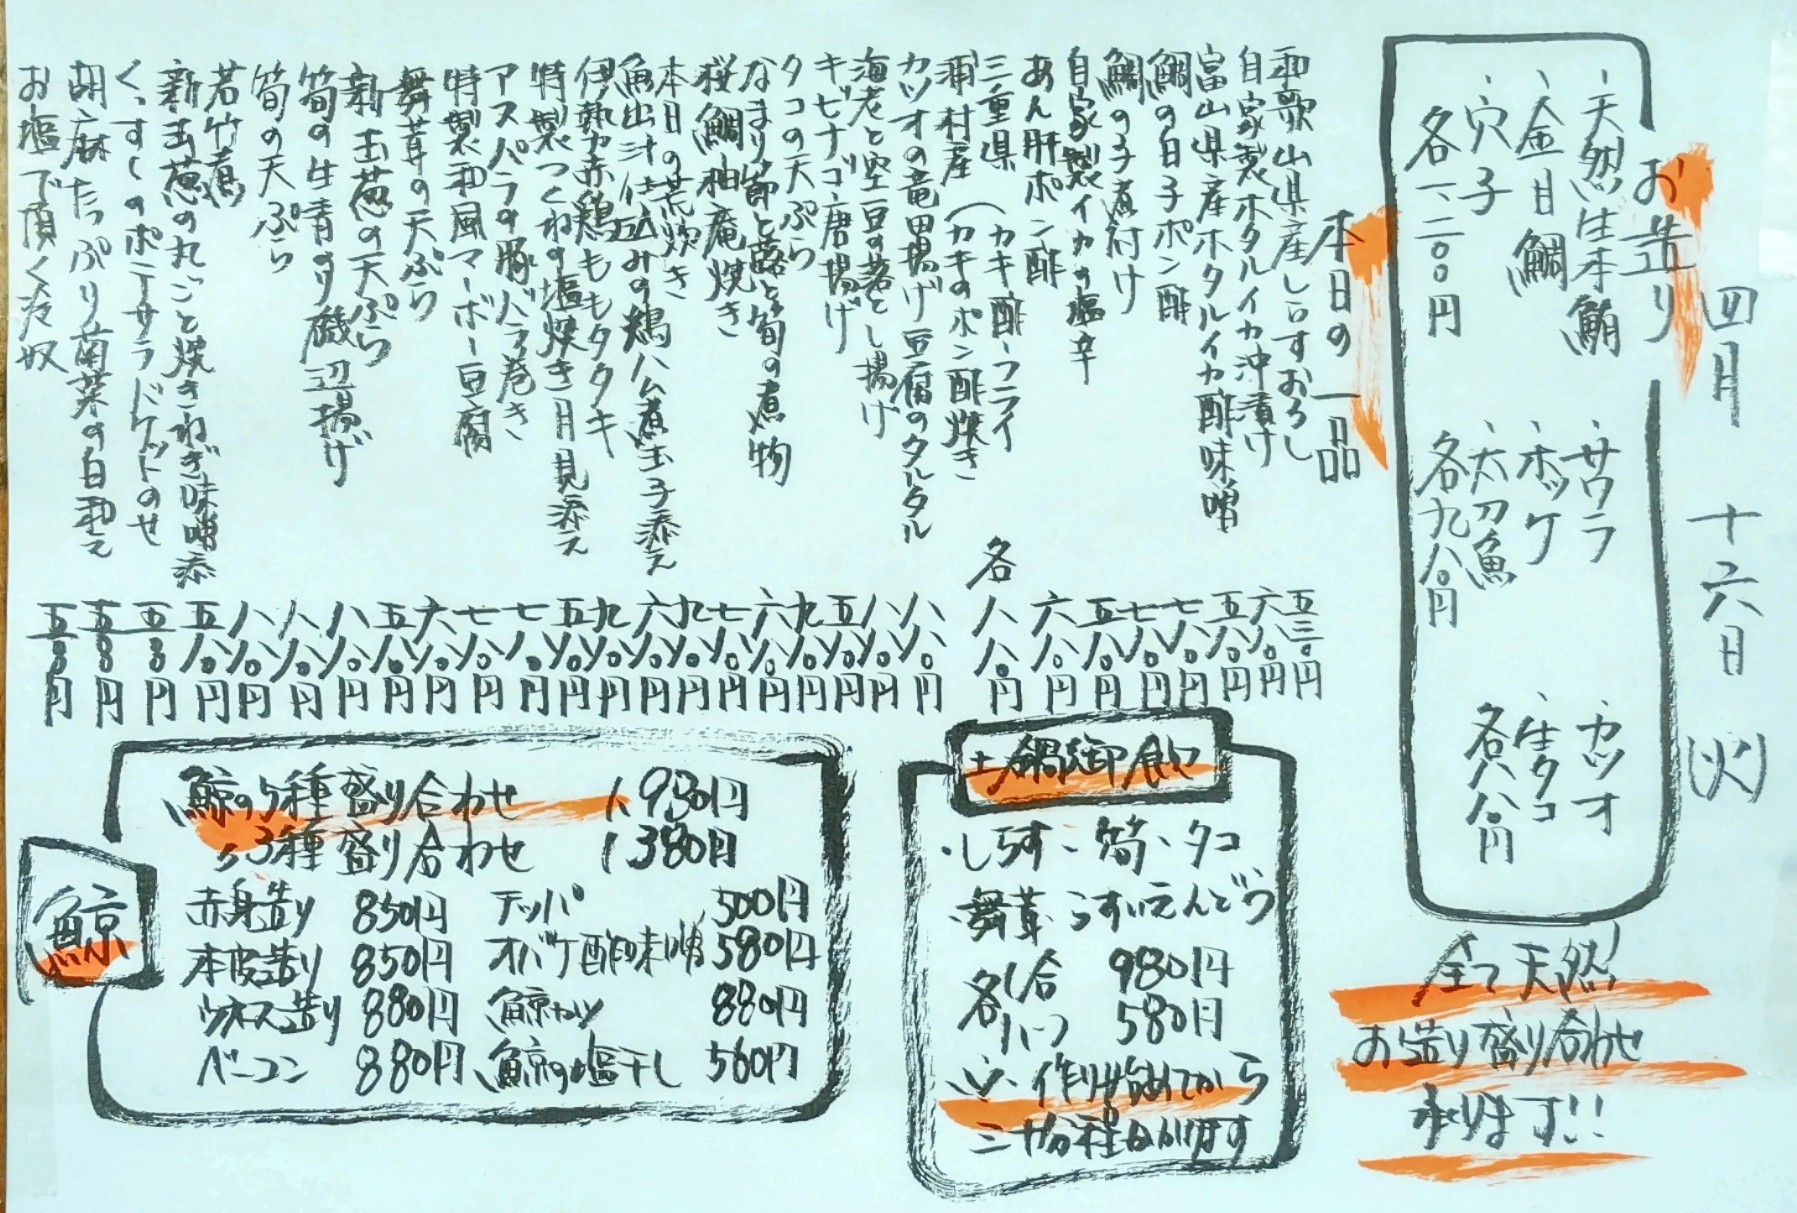 四月 十六日 (火)
お造り
・天然生本鮪
・金目鯛
・穴子
各一、二〇〇円
・サワラ
・ホッケ
・太刀魚
各九八〇円
・カツオ
・生タコ
各八八〇円
全て天然!
お造り盛り合わせ
承ります!!
本日の一品
和歌山県産しらすおろし 五三〇円
自家製ホタルイカ沖漬け 六八〇円
富山県産ホタルイカ酢味噌 五八〇円
鯛の白子ポン酢 七八〇円
鯛の子煮付け 七八〇円
自家製イカの塩辛 五八〇円
あん肝ポン酢 六八〇円
三重県 (カキ酢・フライ
浦村産 (カキのポン酢焼き 各八八〇円
カツオの竜田揚げ豆腐のタルタル 八八〇円
海老と空豆の落とし揚げ 八八〇円
キビナゴ唐揚げ 五八〇円
タコの天ぷら 九八〇円
なまり節と蕗と筍の煮物 六八〇円
桜鯛柚庵焼き 七八〇円
本日の荒炊き 九八〇円
魚出汁仕込みの鶏ハム煮玉子添え 六八〇円
伊勢赤鶏ももタタキ 九八〇円
特製つくねの塩焼き月見添え 五八〇円
アスパラの豚バラ巻き 七八〇円
特製和風マーボー豆腐 七八〇円
舞茸の天ぷら 六八〇円
新玉葱の天ぷら 五八〇円
筍の生青のり磯辺揚げ 八八〇円
筍の天ぷら 八八〇円
若竹煮 八八〇円
新玉葱の丸ごと焼きねぎ味噌添 五八〇円
くっすしのポテサラドケットのせ 五五〇円
胡麻たっぷり菊菜の白和え 五五〇円
お塩で頂く冷奴 五五〇円
土鍋御飯
・しらす・筍・タコ
・舞茸・うすいえんどう
各 1合 980円
1/2 580円
※・作り始めてから
三十分程かかります
鯨
鯨の5種盛り合わせ 1,930円
〃3種盛り合わせ 1,380円
赤身造り 850円 テッパ 500円
本皮造り 850円 オバケ酢味噌 580円
ウネス造り 880円 鯨カツ 880円
ベーコン 880円 鯨の塩干し 560円